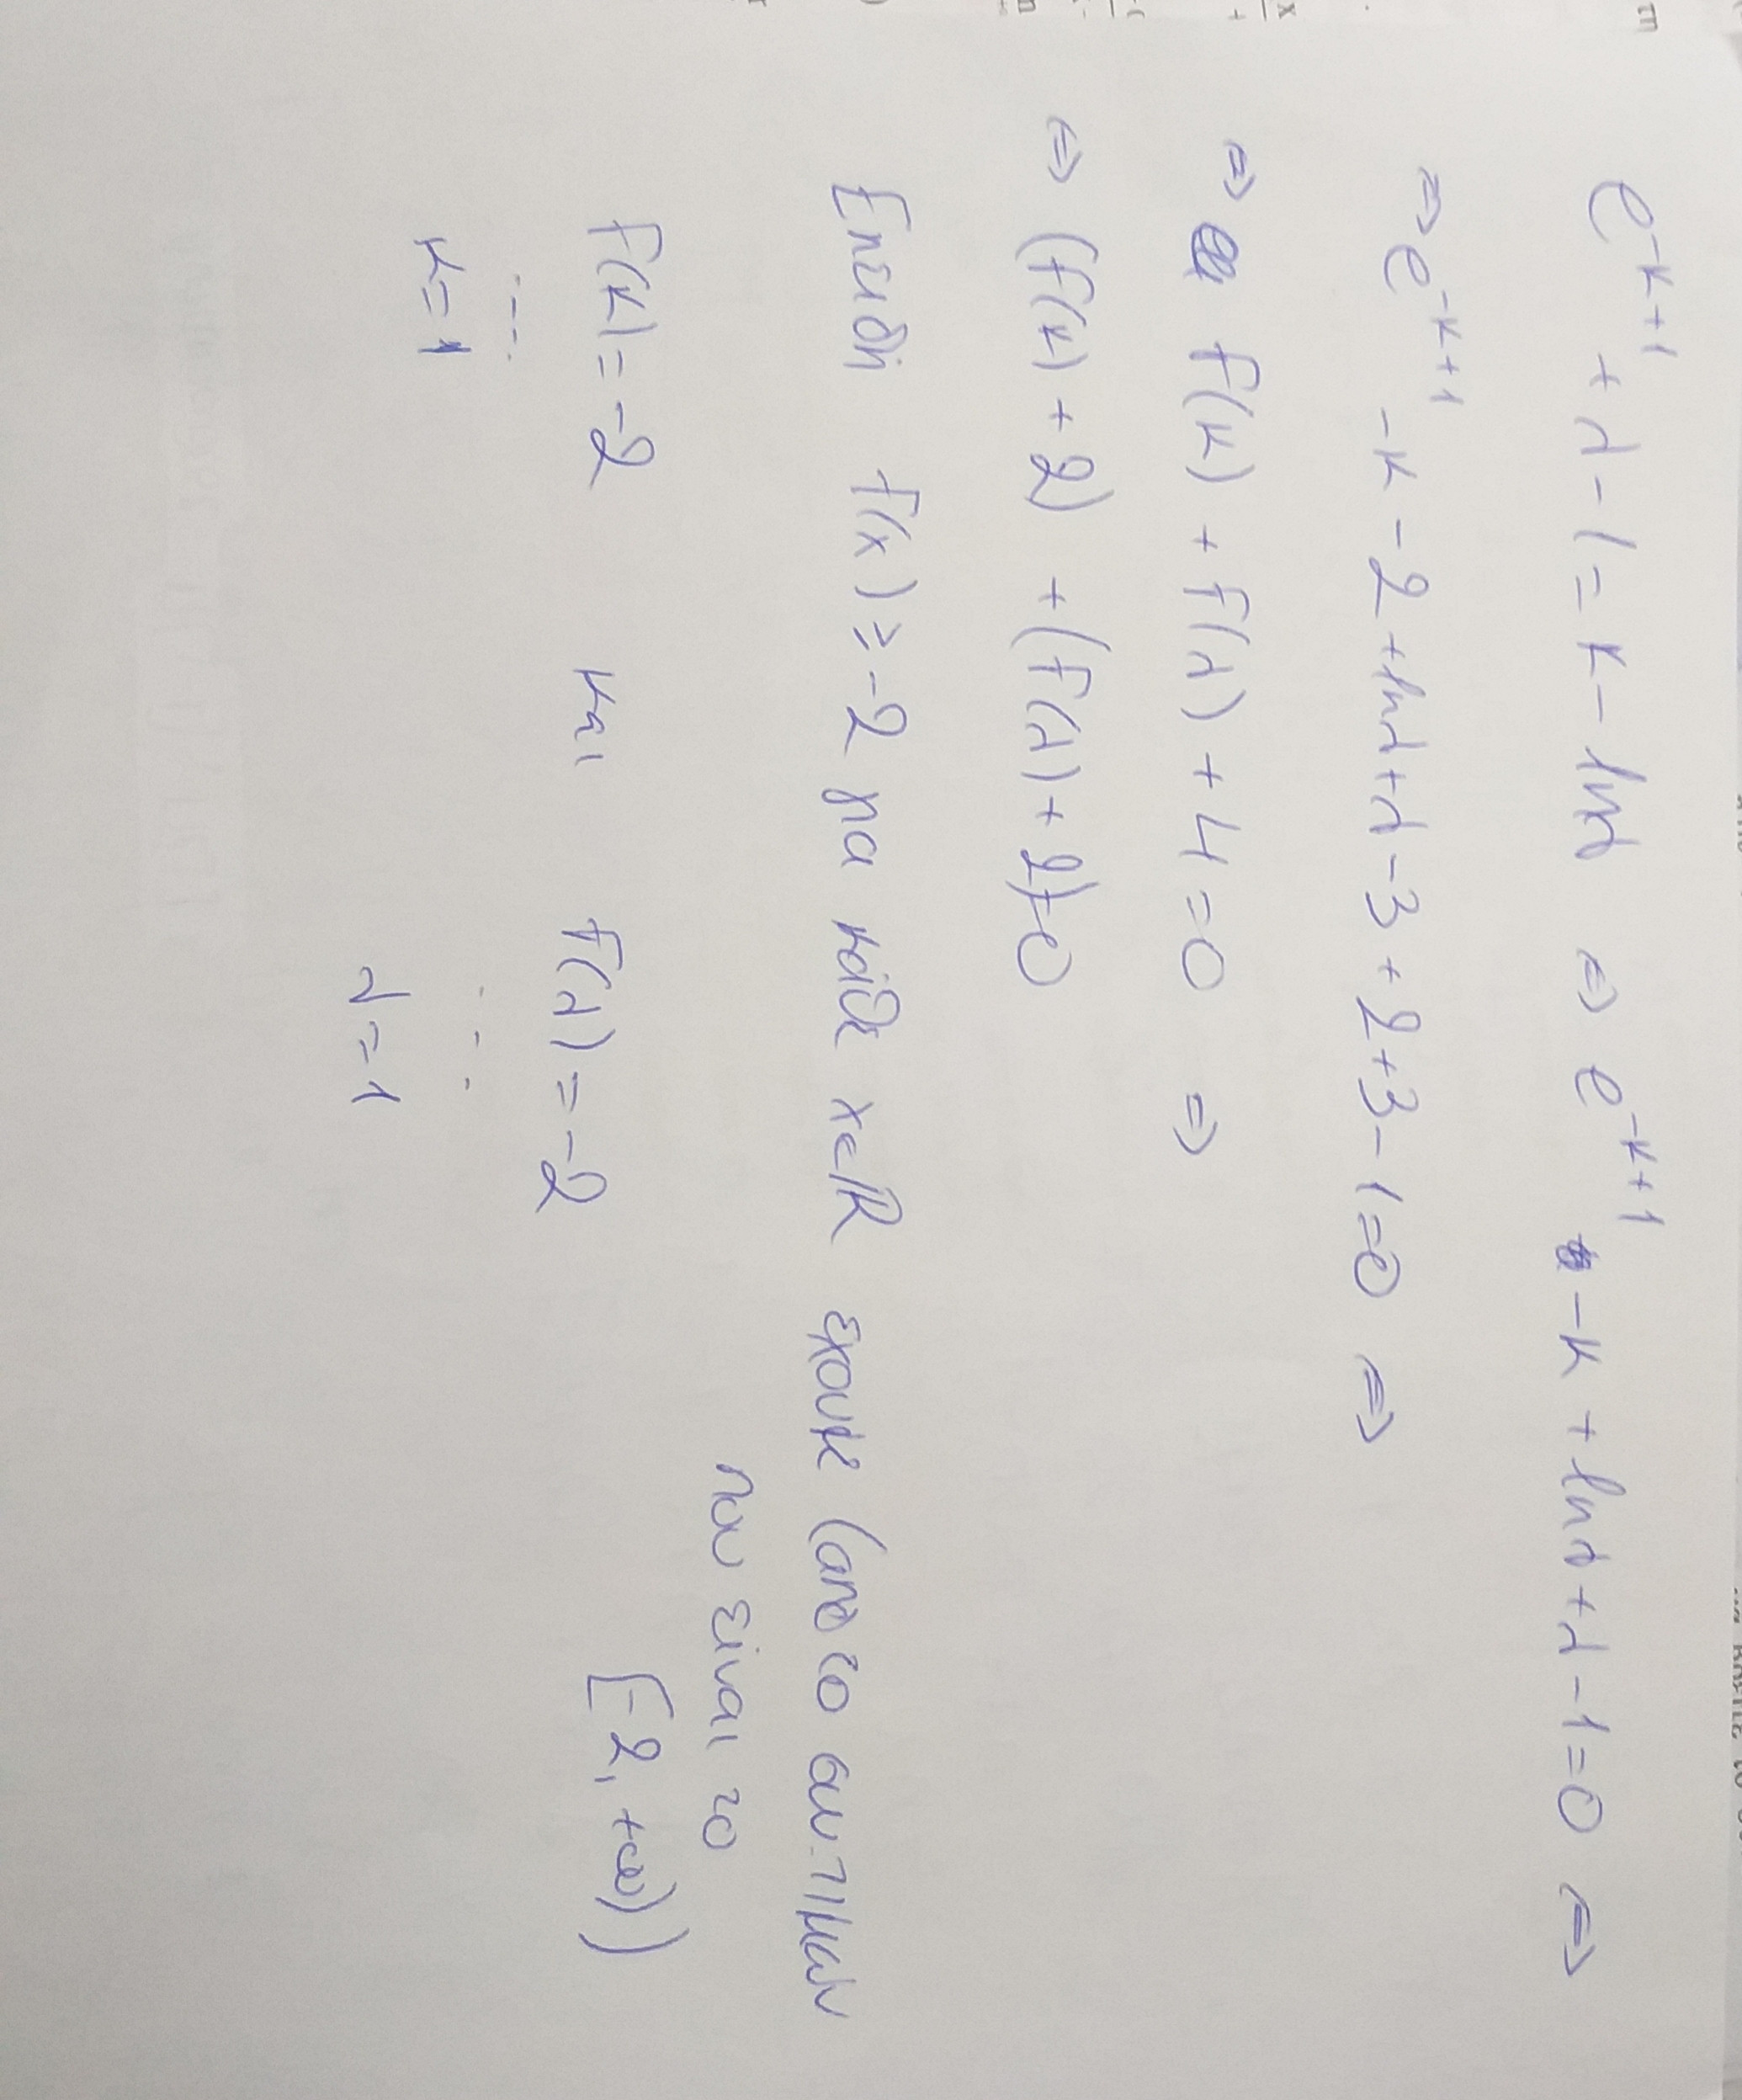 e^{-κ+1} + λ - 1 = κ - lnλ ⇔ e^{-κ+1} - κ + lnλ + λ - 1 = 0 ⇔
⇔ e^{-κ+1} - κ - 2 + lnλ + λ - 3 + 2 + 3 - 1 = 0 ⇔
⇔ f(κ) + f(λ) + 4 = 0 ⇔
⇔ (f(κ) + 2) + (f(λ) + 2) = 0
Επειδή f(x) ≥ -2 για κάθε x∈ℝ έχουμε (από το συν. τιμών
που είναι το
[-2, +∞))
f(κ) = -2 και f(λ) = -2
...
κ = 1
...
λ = 1